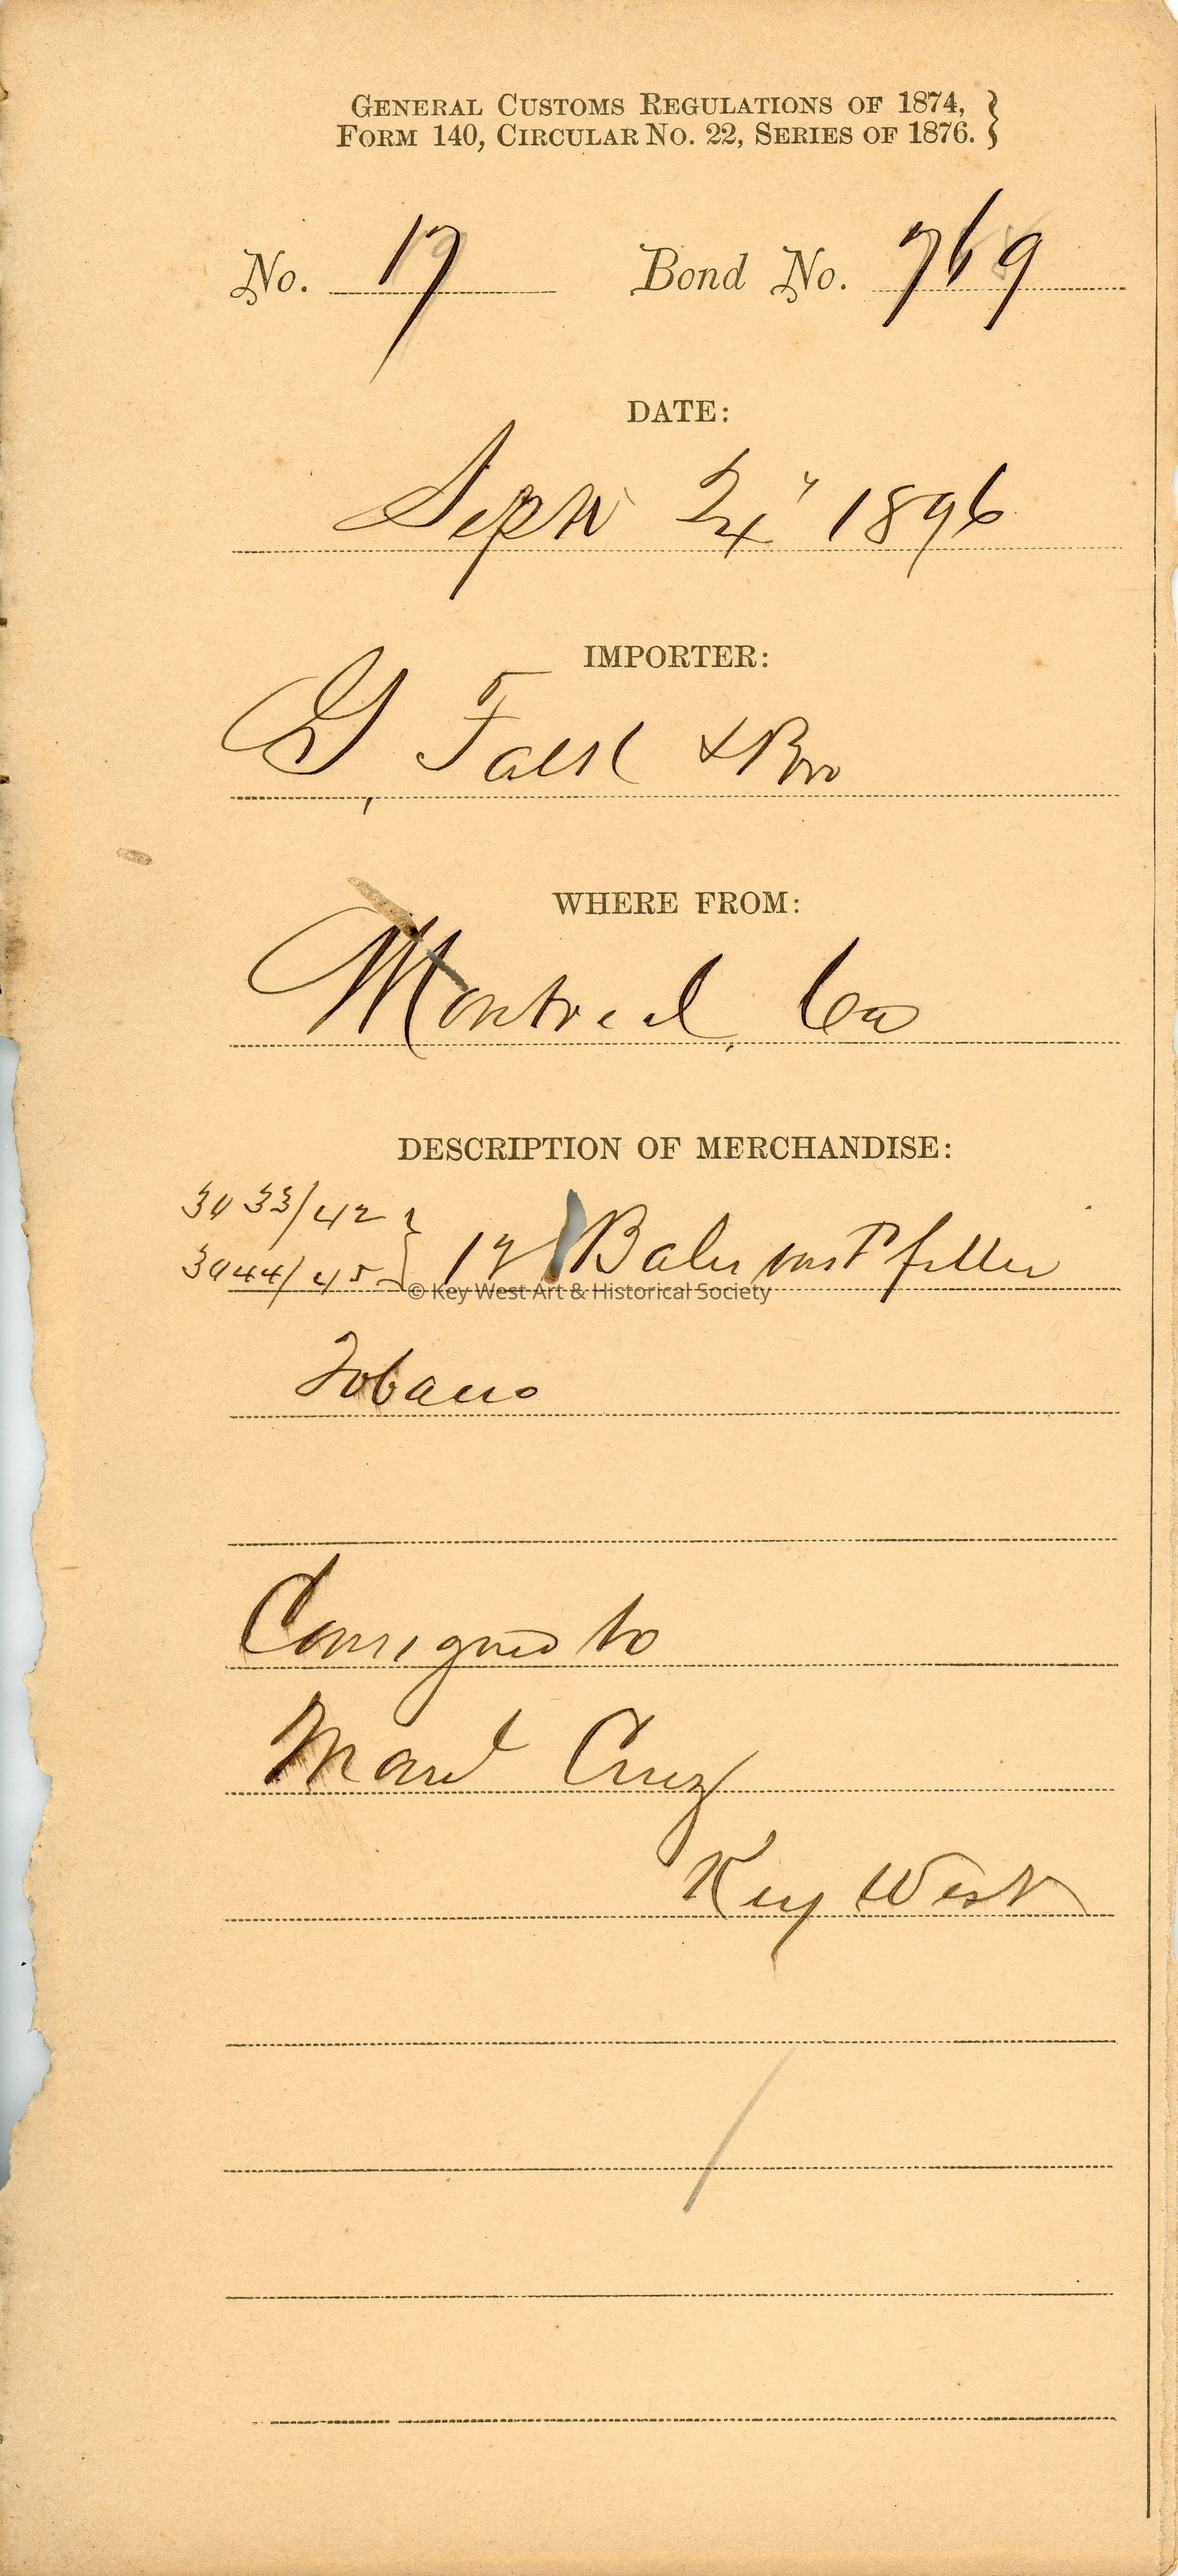 GENERAL CUSTOMS REGULATIONS OF 1874,
FORM 140, CIRCULAR No. 22, SERIES OF 1876. }
No. 17 Bond No. 769
DATE:
Sept 24" 1896
IMPORTER:
G, Falk & Bro
WHERE FROM:
Montreal, Ca
DESCRIPTION OF MERCHANDISE:
3033/42 }
3044/45 } 12 Bales filler
© Key West Art & Historical Society
Tobacco
Consigned to
Cruz
Key West